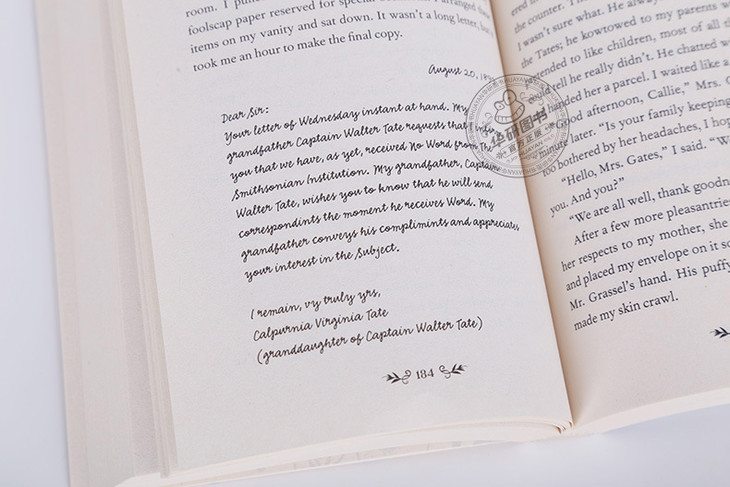 room. I
foolscap paper reserved for special
items on my vanity and sat down. It wasn't a long letter, but
took me an hour to make the final copy.
August 20,
Dear Sir:
Your letter of Wednesday instant at hand. My
grandfather Captain Walter Tate requests that I
you that we have, as yet, received No Word from The
Smithsonian Institution. My grandfather, Captain
Walter Tate, wishes you to know that he will send
correspondints the moment he receives Word. My
grandfather conveys his complimints and appreciates
your interest in the Subject.
I remain, vy truly yrs,
Calpurnia Virginia Tate
(granddaughter of Captain Walter Tate)
184
the counter. I
I wasn't sure what. He always
the Tates; he kowtowed to my parents
to like children, most of all
tell he really didn't. He chatted
handed her a parcel. I waited like a
"Good afternoon, Callie," Mrs. G
minute later. "Is your family keeping
too bothered by her headaches, I hop
"Hello, Mrs. Gates," I said. "W
you. And you?"
"We are all well, thank goodn
After a few more pleasantries
her respects to my mother, she
and placed my envelope on it so
Mr. Grassel's hand. His puffy
made my skin crawl.
华研图书
HUAYAN